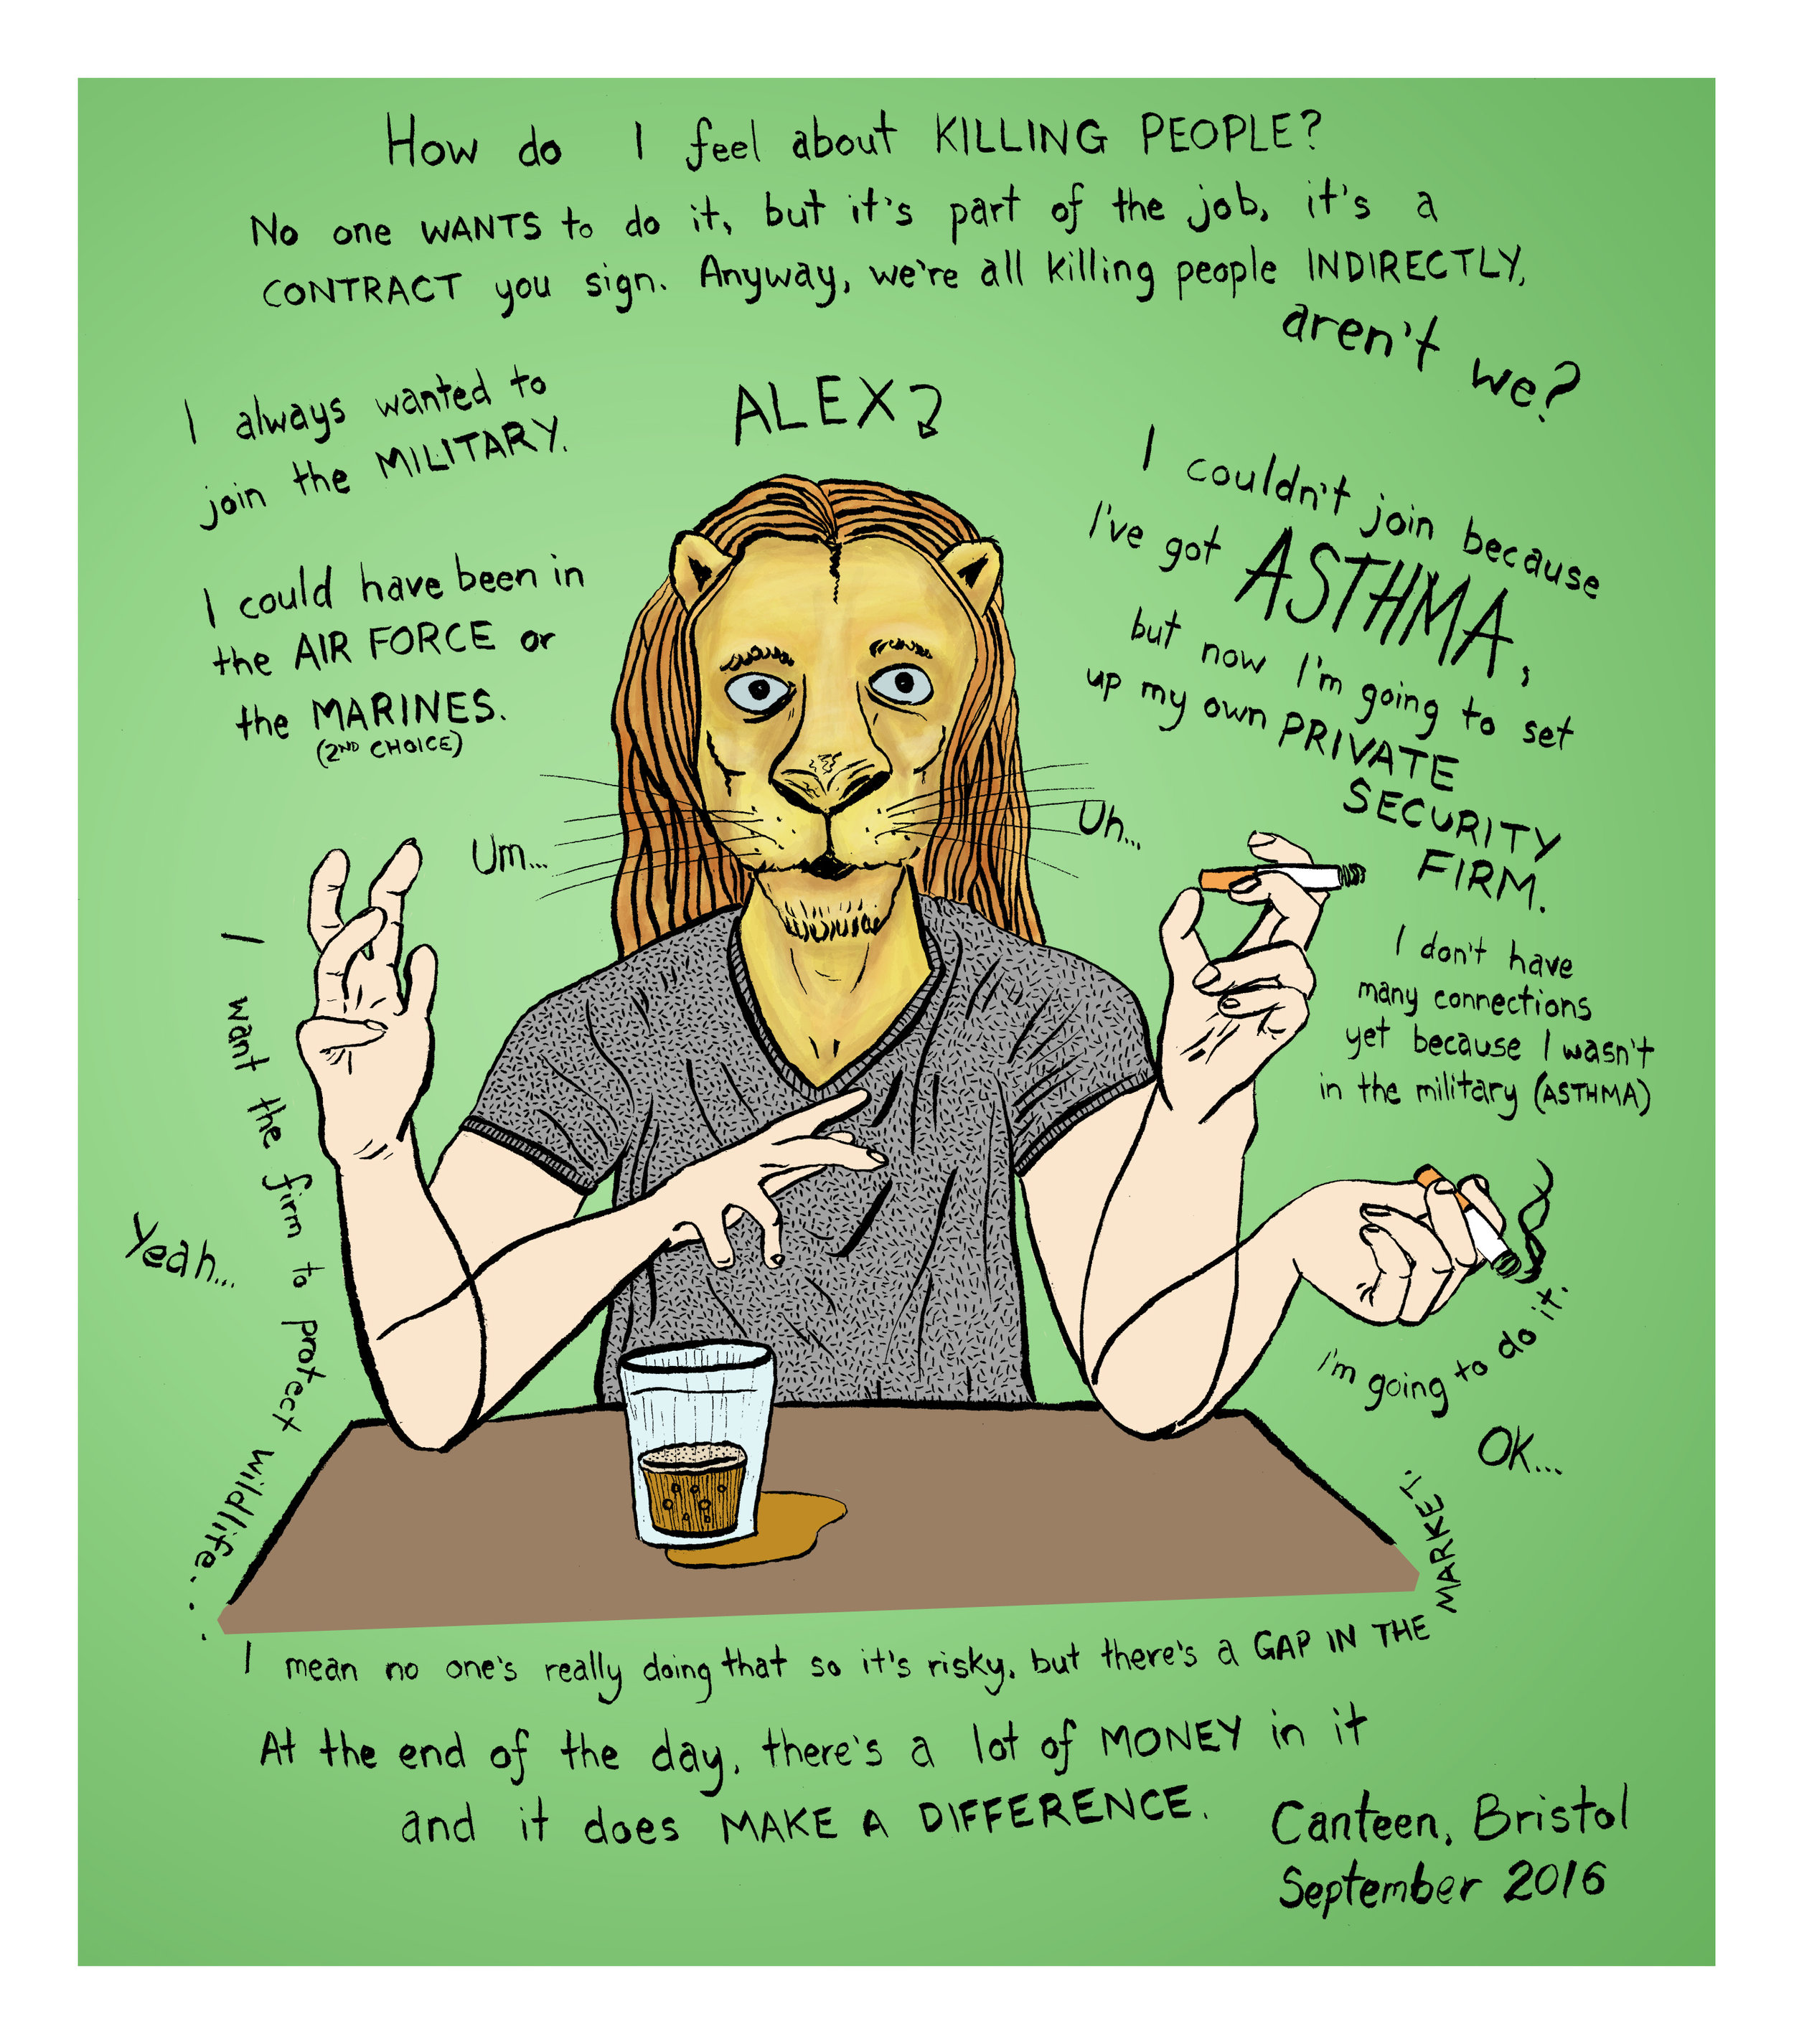 How do I feel about KILLING PEOPLE?
No one WANTS to do it, but it's part of the job, it's a
CONTRACT you sign. Anyway, we're all killing people INDIRECTLY,
aren't we?
I always wanted to
join the MILITARY.
ALEX
I could have been in
the AIR FORCE or
the MARINES.
(2ND CHOICE)
I couldn't join because
I've got ASTHMA,
but now I'm going to set
up my own PRIVATE
SECURITY
FIRM.
Um...
Uh...
I don't have
many connections
yet because I wasn't
in the military (ASTHMA)
Yeah...
I'm going to do it.
OK...
I want the firm to protect wildlife...
I mean no one's really doing that so it's risky, but there's a GAP IN THE MARKET.
At the end of the day, there's a lot of MONEY in it
and it does MAKE A DIFFERENCE.
Canteen, Bristol
September 2016